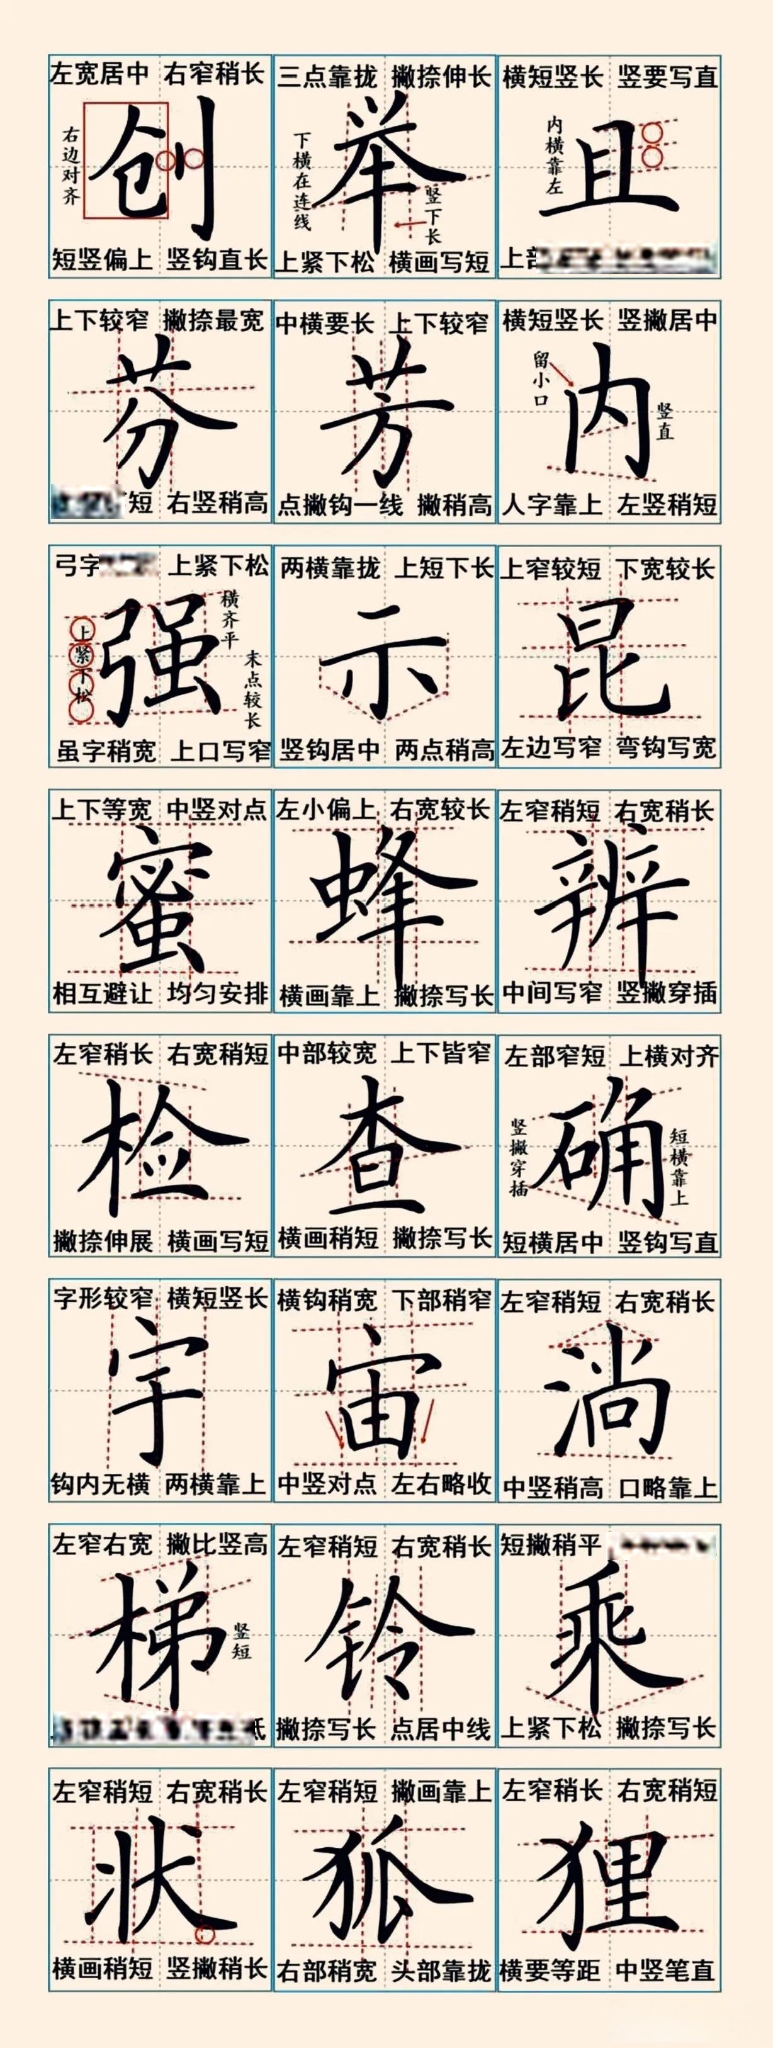 左宽居中 右窄稍长
右边对齐
创
短竖偏上 竖钩直长
三点靠拢 撇捺伸长
下横在连线
举
竖下长
上紧下松 横画写短
横短竖长 竖要写直
内横靠左
且
上部
上下较窄 撇捺最宽
芬
短 右竖稍高
中横要长 上下较窄
芳
点撇钩一线 撇稍高
横短竖长 竖撇居中
留小口
内
竖直
人字靠上 左竖稍短
弓字 上紧下松
横齐平
上紧下松
强
末点较长
虽字稍宽 上口写窄
两横靠拢 上短下长
示
竖钩居中 两点稍高
上窄较短 下宽较长
昆
左边写窄 弯钩写宽
上下等宽 中竖对点
蜜
相互避让 均匀安排
左小偏上 右宽较长
蜂
横画靠上 撇捺写长
左窄稍短 右宽稍长
辨
中间写窄 竖撇穿插
左窄稍长 右宽稍短
检
撇捺伸展 横画写短
中部较宽 上下皆窄
查
横画稍短 撇捺写长
左部窄短 上横对齐
竖撇穿插
确
短横靠上
短横居中 竖钩写直
字形较窄 横短竖长
宇
钩内无横 两横靠上
横钩稍宽 下部稍窄
宙
中竖对点 左右略收
左窄稍短 右宽稍长
淌
中竖稍高 口略靠上
左窄右宽 撇比竖高
梯
竖短
左窄稍短 右宽稍长
铃
撇捺写长 点居中线
短撇稍平
乘
上紧下松 撇捺写长
左窄稍短 右宽稍长
状
横画稍短 竖撇稍长
左窄稍短 撇画靠上
狐
右部稍宽 头部靠拢
左窄稍长 右宽稍短
狸
横要等距 中竖笔直